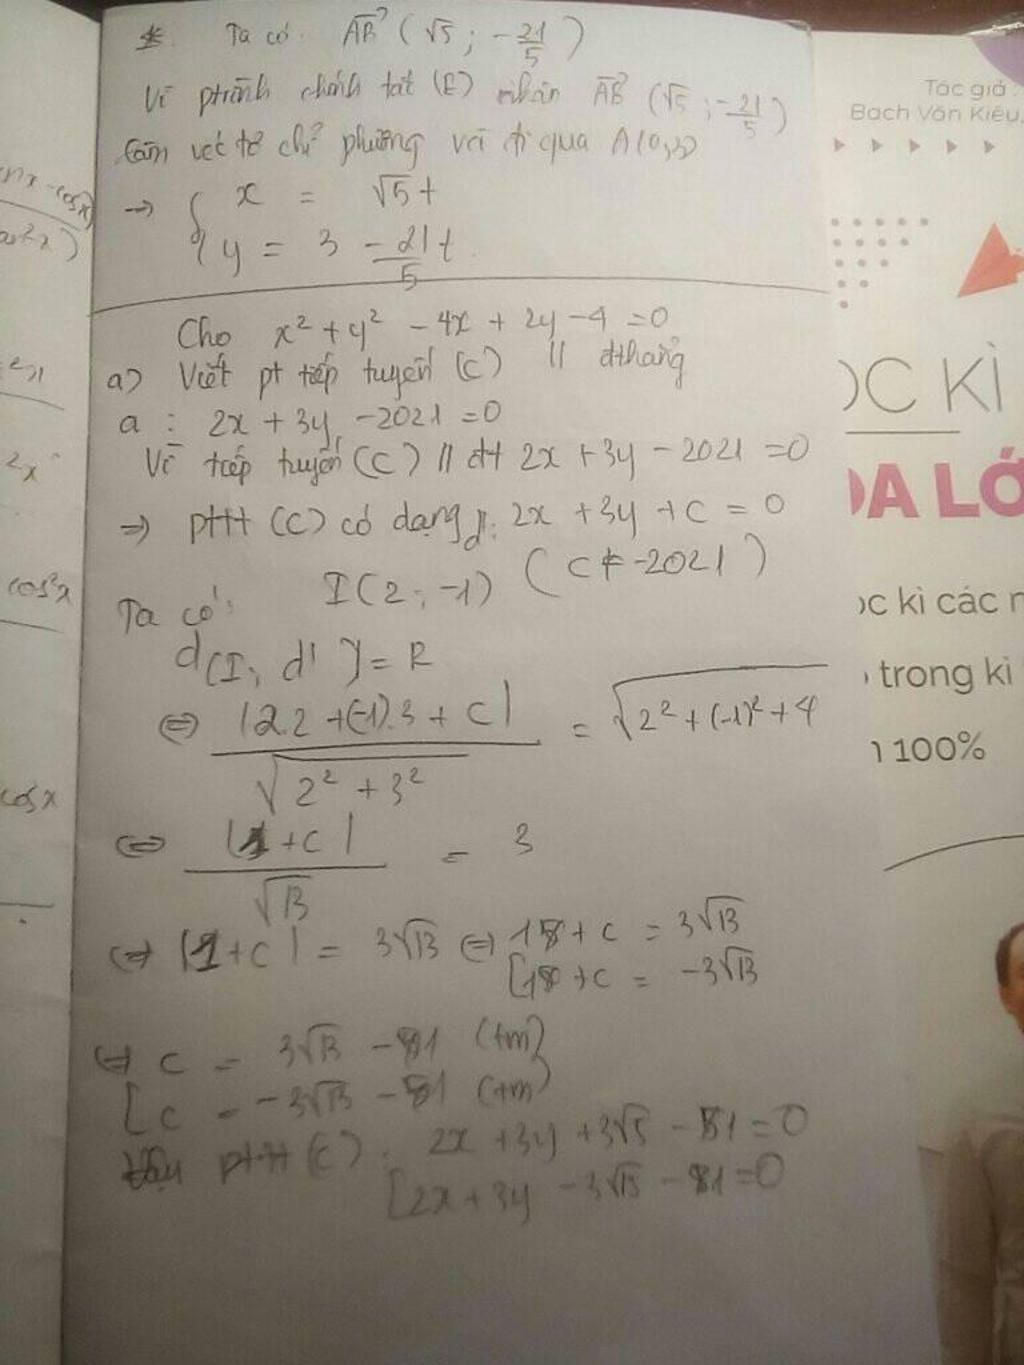 * Ta có: AB (√5; -21/5)
Vì ptrình chính tắt (E) nhân AB (√5; -21/5)
làm vectơ chỉ phương và đi qua A(0,3)
→ { x = √5t
{ y = 3 - 21/5 t
Cho x² + y² - 4x + 2y - 4 = 0
a) Viết pt tiếp tuyến (C) // đthẳng
a : 2x + 3y - 2021 = 0
Vì tiếp tuyến (C) // đt 2x + 3y - 2021 = 0
⇒ pttt (C) có dạng: 2x + 3y + c = 0
(c ≠ -2021)
Ta có: I(2; -1)
d(I; d') = R
⇔ |2.2 + (-1).3 + c| / √2² + 3² = √2² + (-1)² + 4
⇔ |1 + c| / √13 = 3
⇔ |1 + c| = 3√13 ⇔ [ 1 + c = 3√13
[ 1 + c = -3√13
⇔ [ c = 3√13 - 1 (tm)
[ c = -3√13 - 1 (tm)
Vậy pttt (C): [ 2x + 3y + 3√13 - 1 = 0
[ 2x + 3y - 3√13 - 1 = 0
Tác giả:
Bạch Văn Kiều,
ỌC KÌ
ÓA LỚ
ọc kì các m
trong kì
100%
cos²x
cosx